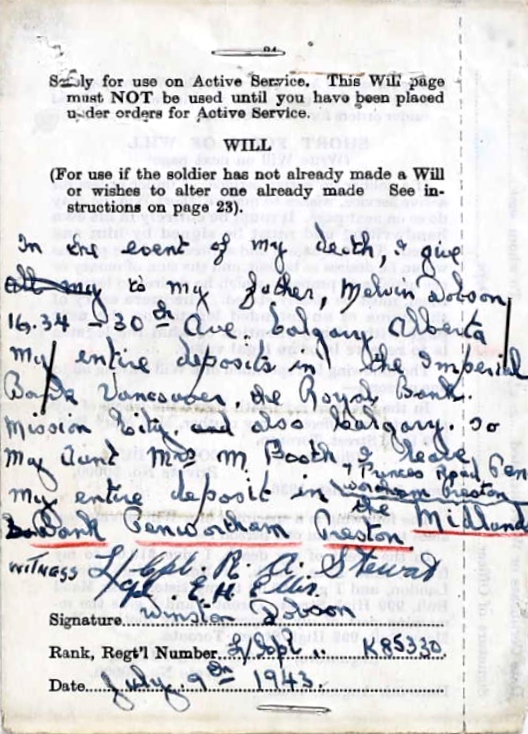 24
Solely for use on Active Service. This Will page
must NOT be used until you have been placed
under orders for Active Service.
WILL
(For use if the soldier has not already made a Will
or wishes to alter one already made See in-
structions on page 23).
In the event of my death, I give
all my to my Father, Melvin Dobson
16.34 - 30th Ave. Calgary Alberta
my entire deposits in the Imperial
Bank Vancouver, the Royal Bank.
Mission City and also Calgary. So
my Aunt Mrs M Booth I leave
7 Princes Road Pen
my entire deposit in wortham Preston
the Midland
Bank Penwortham Preston
WITNESS L/Cpl. R. A. Stewart
Cpl. E H Ellis.
Signature Winston Dobson
Rank, Regt'l Number L/Cpl. K85330
Date July 9th 1943.